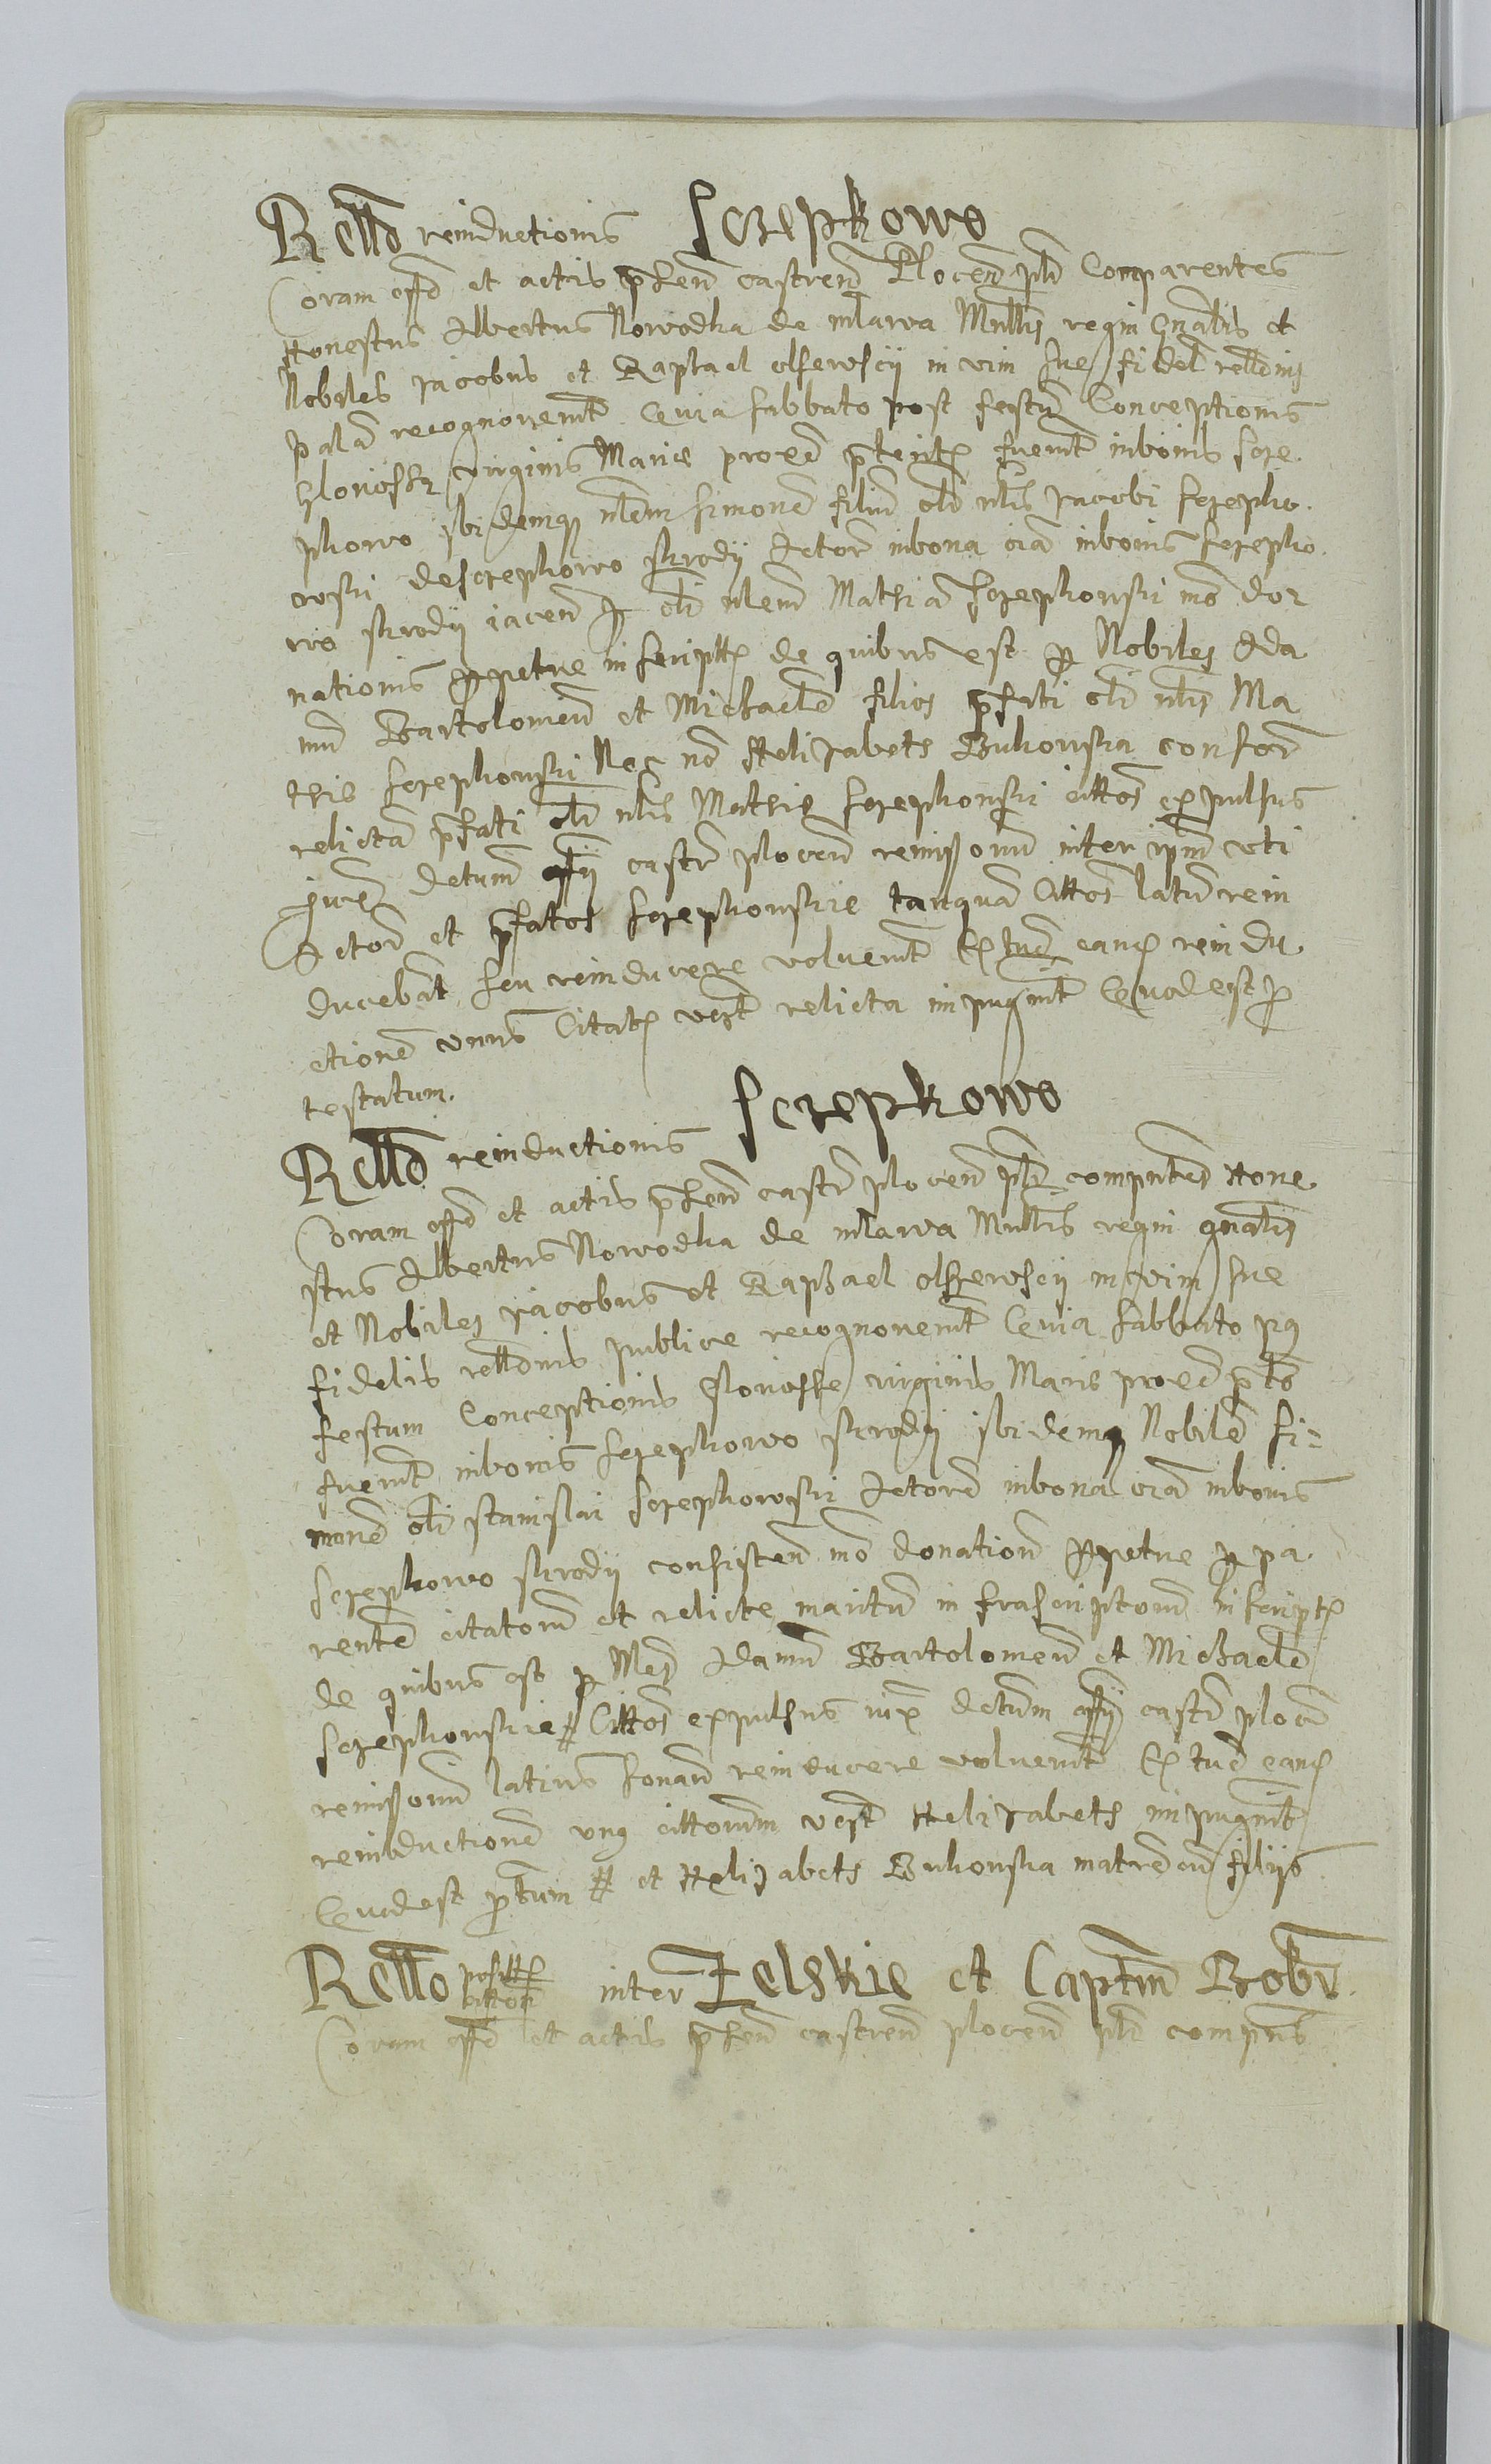 Rello reinductionis Sczepkowo
Coram offo et actis pnten castren Plocen plr Comparentes
Honestus Albertus Nowodka de Mlawa Mnlis regni gnalis et
Nobiles Jacobus et Raphael olsewscij in vim sue fidel rellonis
palam recognoverunt Quia sabbato post festum Conceptionis
gloriosse virginis Marie proxe pterit fuerunt in bonis scze
pkowo ibidemq nlem simonem filium olim nlis Jacobi sczepko
wski de sczepkowo Actorem in bona oia in bonis sczepko
wo jacen p olim nlem Mathiam sczepkowski mo do
nationis ppetue inscript de quibus est p Nobiles Ada
mu Bartolomeu et Michaele filios pfati olim nlis Ma
thie sczepkowski Nec no Helizabeth Bukowska consor
relictam pfati olim nlis Mathie sczepkowski cittos expulsus
juxta dctum offij castr plocen remissorum inter ipm uti
Actorem et pfatos sczepkowskie tanquam Cittos latum rein
ducebant seu reinducere voluerunt Extunc eanq reindu
ctionem unus Citat vest relicta impugnit Quod est p
testatum.
Rello reinductionis Sczepkowo
Coram offo et actis pnten castr plocen plr compntes Hone
stus Albertus Nowodka de mlawa Mnlis regni gnalis
et Nobiles Jacobus et Raphael olszewscij in vim sue
fidelis rellonis publice recognoverunt Quia sabbato pq
festum Conceptionis Gloriosse virginis Marie proxe pto
fuerunt in bonis sczepkowo ibidemq Nobile si=
mone olim stanislai sczepkowski Actore in bona oia in bonis
sczepkowo consisten mo donationis ppetue p pa
rente citatorum et relicte maritum infrascriptorum inscript
de quibus est p Nles Adamum Bartolomeum et Michaelem
sczepkowskie # Cittos expulsus iux dctum offij castr plocen
remissorum latius sonan reinducere voluerunt Extunc eanq
reinductionem unq cittorum vest Helizabeth impugnit
Quod est ptum # et Helizabeth Bukowska matrem cum filijs
Rello posit inter Zelskie et Captm Bobr.
Coram offo et actis pnten castren plocen plr compns